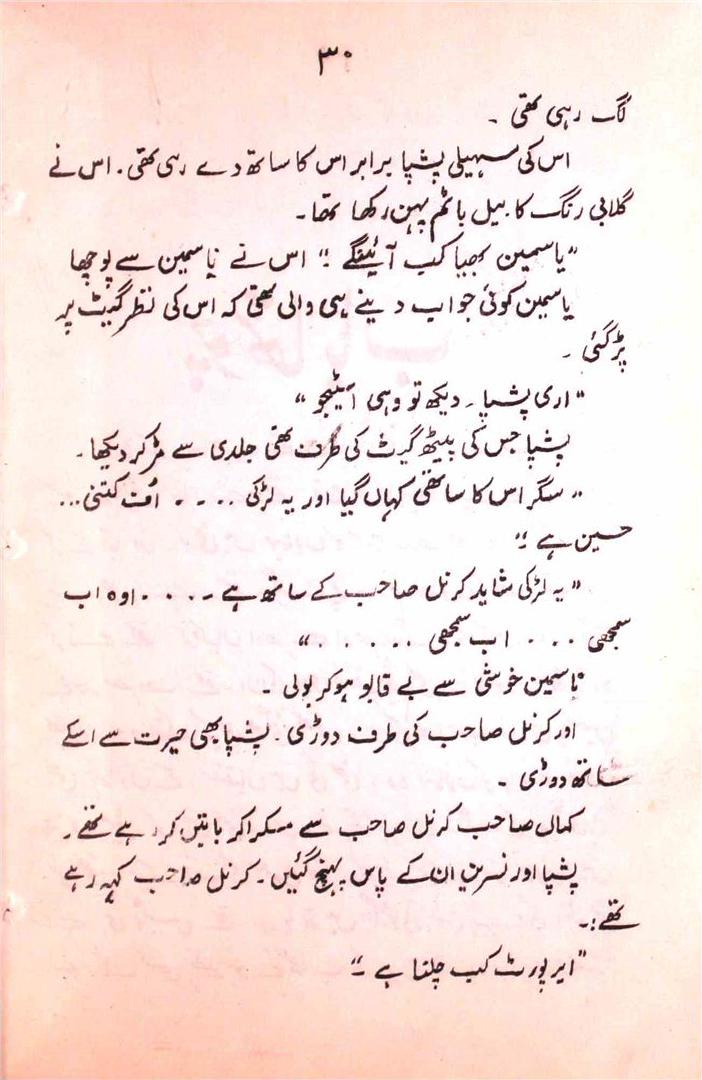 ۳۰
لگ رہی تھی ۔
اس کی سہیلی پشپا برابر اس کا ساتھ دے رہی تھی۔ اس نے
گلابی رنگ کا بیل باٹم پہن رکھا تھا۔
”یاسمین بھیا کب آئینگے ؟“ اس نے یاسمین سے پوچھا
یاسمین کوئی جواب دینے ہی والی تھی کہ اس کی نظر گیٹ پر
پڑ گئی ۔
”اری پشپا ۔ دیکھ تو وہی اسٹیچو“
پشپا جس کی پیٹھ گیٹ کی طرف تھی جلدی سے مڑ کر دیکھا ۔
”مگر اس کا ساتھی کہاں گیا اور یہ لڑکی ۔۔۔ اُف کتنی ...
حسین ہے ۔“
”یہ لڑکی شاید کرنل صاحب کے ساتھ ہے ۔... اوہ اب
سمجھی ... اب سمجھی ......“
یاسمین خوشی سے بے قابو ہو کر بولی ۔
اور کرنل صاحب کی طرف دوڑی ۔ پشپا بھی حیرت سے اسکے
ساتھ دوڑی ۔
کمال صاحب کرنل صاحب سے مسکرا کر باتیں کر رہے تھے ۔
پشپا اور نسرین ان کے پاس پہنچ گئیں ۔ کرنل صاحب کہہ رہے
تھے :۔
”ایرپورٹ کب چلنا ہے ۔“